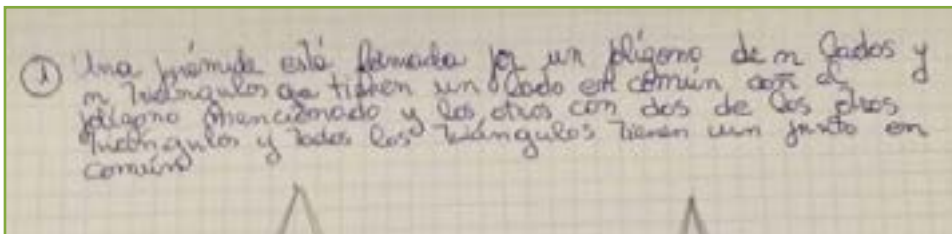 ① Una pirámide está formada por un polígono de n lados y
n triángulos que tienen un lado en común con el
polígono mencionado y los otros con dos de los otros
triángulos y todos los triángulos tienen un punto en
común